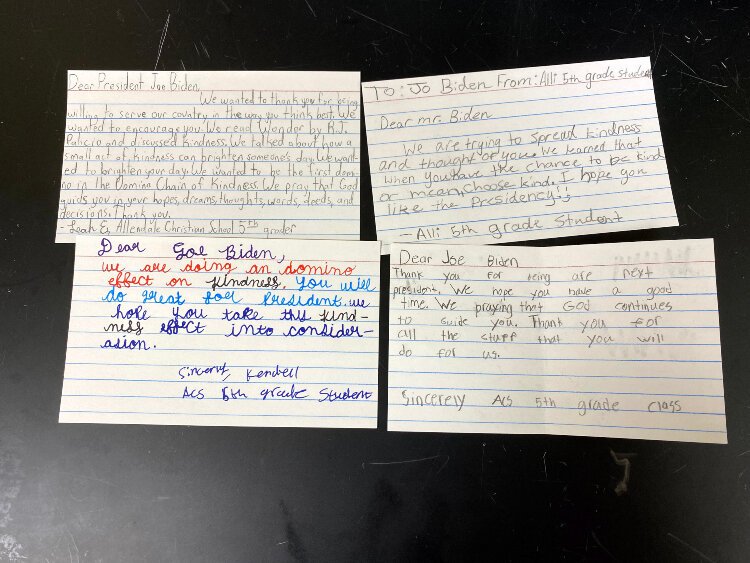 Dear President Joe Biden,
We wanted to thank you for being
willing to serve our country in the way you think best. We
wanted to encourage you. We read Wonder by R.J.
Palicio and discussed Kindness. We talked about how a
small act of kindness can brighten someones day. We want-
ed to brighten your day. We wanted to be the first dom-
no in the Domino Chain of Kindness. We pray that God
guids you in your hopes, dreams, thoughts, words, deeds, and
decisions. Thank you.
- Leah E, Allendale Christian School 5th grader
TO: Jo Biden From: Alli 5th grade student
Dear mr. Biden
We are trying to spread kindness
and thought of you. We learned that
when you have the chance to be kind
or mean, choose kind. I hope you
like the Presidency!!
- Alli 5th grade Student
Dear Goe Biden,
we are doing an domino
effect on kindness. You will
do great for President. we
hope you take this kind-
ness effect into consider-
asion.
Sincerly, Kendell
Acs 5th grade Student
Dear Joe Biden
Thank you for being are next
president. We hope you have a good
time. We praying that God continues
to guide you. Thank you for
all the stuff that you will
do for us.
Sincerely Acs 5th grade class